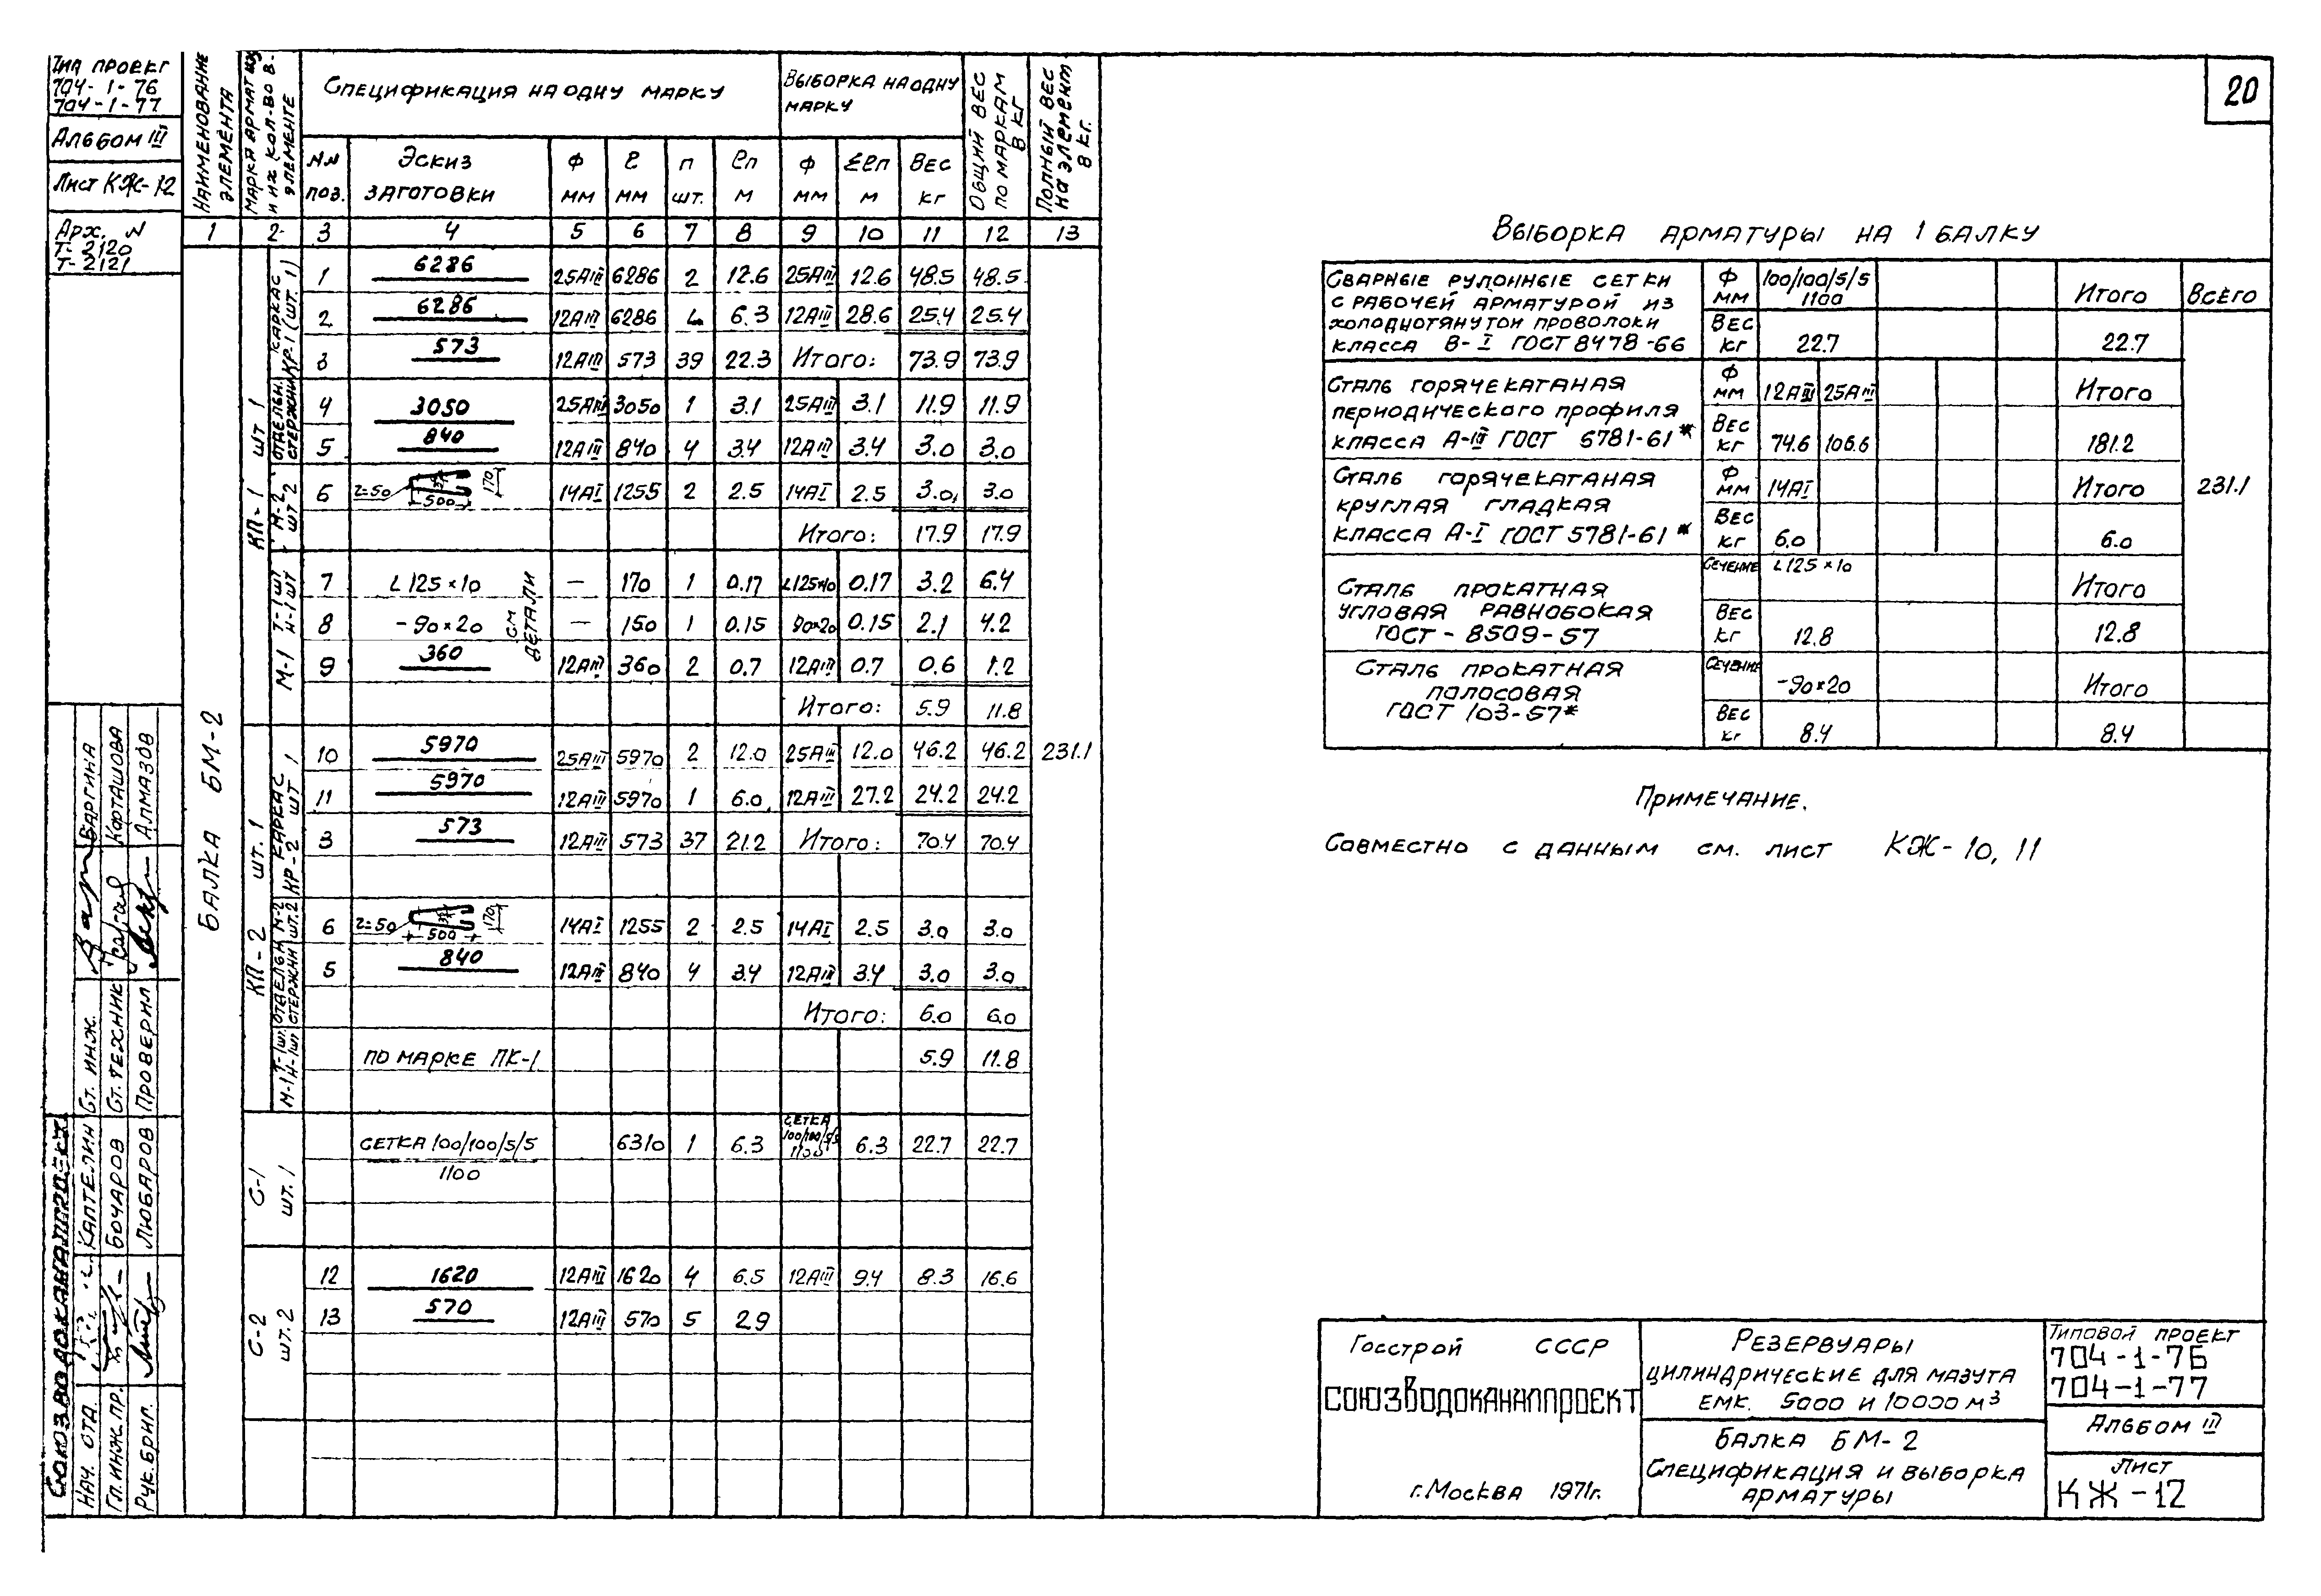 Тип проект
704-1-76
704-1-77
Альбом III
Лист КЖ-12
Арх. N
Т-2120
Т-2121
20
Наименование элемента
Марка арматуры и их кол-во в элементе
Спецификация на одну марку
Выборка на одну марку
Общий вес по маркам в кг
Полный вес на элемент в кг.
NN поз.
Эскиз заготовки
Ф мм
ℓ мм
п шт.
ℓп м
Ф мм
Σℓп м
Вес кг
1 2 3 4 5 6 7 8 9 10 11 12 13
Балка БМ-2
КП-1 шт 1
Каркас КР-1 (шт. 1)
1 6286 25АIII 6286 2 12.6 25АIII 12.6 48.5 48.5
2 6286 12АIII 6286 4 6.3 12АIII 28.6 25.4 25.4
3 573 12АIII 573 39 22.3 Итого: 73.9 73.9
Отдельн. стержни
4 3050 25АIII 3050 1 3.1 25АIII 3.1 11.9 11.9
5 840 12АIII 840 4 3.4 12АIII 3.4 3.0 3.0
М-2 шт 2
6 r=50 500 170 14АI 1255 2 2.5 14АI 2.5 3.0 3.0
Итого: 17.9 17.9
М-1 Т-1шт Н-1шт
7 L125×10 — 170 1 0.17 L125×10 0.17 3.2 6.4
8 -90×20 — 150 1 0.15 90×20 0.15 2.1 4.2
см детали
9 360 12АIII 360 2 0.7 12АIII 0.7 0.6 1.2
Итого: 5.9 11.8
КП-2 шт. 1
Каркас КР-2 шт 1
10 5970 25АIII 5970 2 12.0 25АIII 12.0 46.2 46.2 231.1
11 5970 12АIII 5970 1 6.0 12АIII 27.2 24.2 24.2
3 573 12АIII 573 37 21.2 Итого: 70.4 70.4
М-2 шт.2
6 r=50 500 170 14АI 1255 2 2.5 14АI 2.5 3.0 3.0
Отдельн стержни
5 840 12АIII 840 4 3.4 12АIII 3.4 3.0 3.0
Итого: 6.0 6.0
М-1 Т-1шт. Н-1шт
по марке ПК-1 5.9 11.8
С-1 шт. 1
сетка 100/100/5/5 6310 1 6.3 сетка 100/100/5/5 6.3 22.7 22.7
1100 1100
С-2 шт. 2
12 1620 12АIII 1620 4 6.5 12АIII 9.4 8.3 16.6
13 570 12АIII 570 5 2.9
Выборка арматуры на 1 балку
Сварные рулонные сетки с рабочей арматурой из холоднотянутой проволоки класса В-I ГОСТ 8478-66
Ф мм 100/100/5/5 1100 Итого Всего
Вес кг 22.7 22.7
Сталь горячекатаная периодического профиля класса А-III ГОСТ 5781-61*
Ф мм 12АIII 25АIII Итого
Вес кг 74.6 106.6 181.2
Сталь горячекатаная круглая гладкая класса А-I ГОСТ 5781-61*
Ф мм 14АI Итого 231.1
Вес кг 6.0 6.0
Сталь прокатная угловая равнобокая ГОСТ-8509-57
Сечение L125×10 Итого
Вес кг 12.8 12.8
Сталь прокатная полосовая ГОСТ 103-57*
Сечение -90×20 Итого
Вес кг 8.4 8.4
Примечание.
Совместно с данным см. лист КЖ-10, 11
Союзводоканалпроект
Нач. отд. Каптелин
Гл. инж. пр. Бочаров
Рук. бриг. Любаров
Ст. инж. Варгина
Ст. техник Карташова
Проверил Алмазов
Госстрой СССР
Союзводоканалпроект
г. Москва 1971г.
Резервуары
цилиндрические для мазута
емк. 5000 и 10000 м³
Балка БМ-2
Спецификация и выборка
арматуры
Типовой проект
704-1-76
704-1-77
Альбом III
Лист
КЖ-12